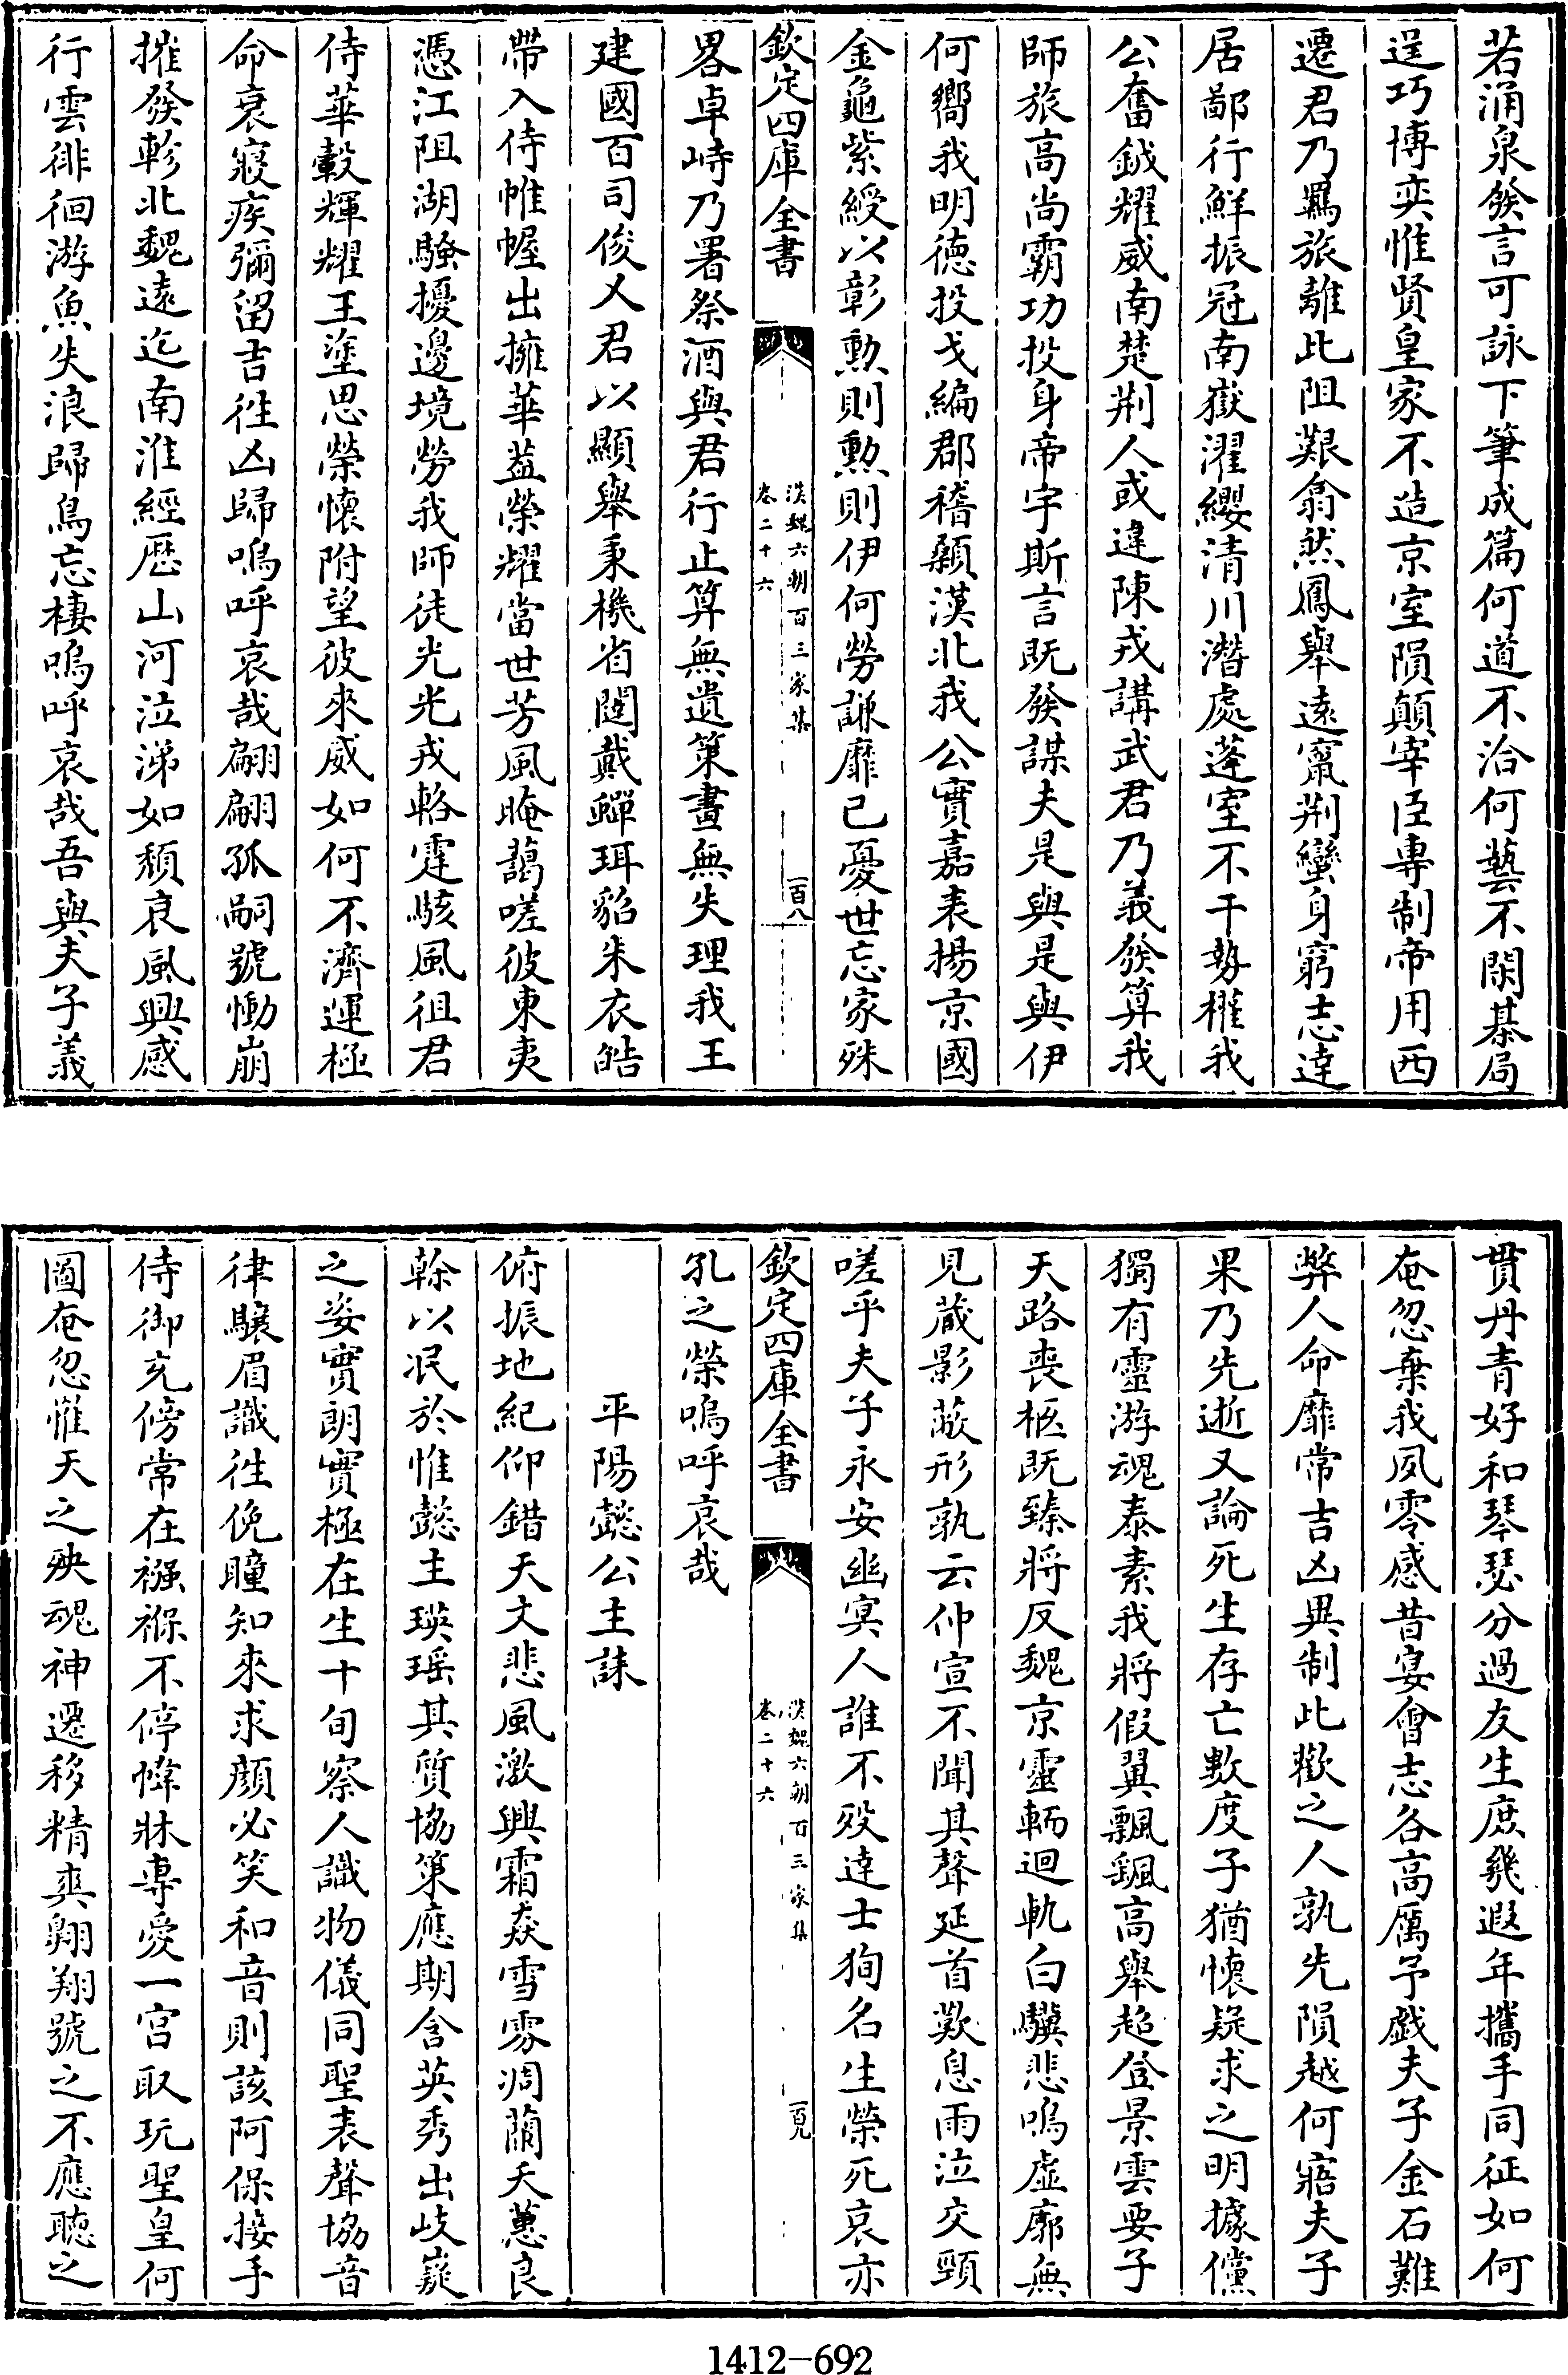 若涌泉發言可詠下筆成篇何道不洽何藝不閑棊局
逞巧博奕惟賢皇家不造京室隕顛宰臣專制帝用西
遷君乃羈旅離此阻艱翕然鳳舉遠竄荆蠻身窮志達
居鄙行鮮振冠南嶽濯纓清川潛處蓬室不干勢權我
公奮鉞耀威南楚荆人或違陳戎講武君乃義發算我
師旅高尚霸功投身帝宇斯言既發謀夫是與是與伊
何嚮我明德投戈編郡稽顙漢北我公實嘉表揚京國
金龜紫綬以彰勲則勲則伊何勞謙靡已憂世忘家殊
欽定四庫全書
漢魏六朝百三家集
卷二十六
一百八
畧卓峙乃署祭酒與君行止算無遺策畫無失理我王
建國百司俊乂君以顯舉秉機省闥戴蟬珥貂朱衣皓
帶入侍帷幄出擁華葢榮耀當世芳風晻藹嗟彼東夷
憑江阻湖騷擾邊境勞我師徒光光戎輅霆駭風徂君
侍華轂輝耀王塗思榮懷附望彼來威如何不濟運極
命衰寢疾彌留吉徃凶歸嗚呼哀哉翩翩孤嗣號慟崩
摧發軫北魏遠迄南淮經歴山河泣涕如頹哀風興感
行雲徘徊游魚失浪歸鳥忘棲嗚呼哀哉吾與夫子義
貫丹青好和琴瑟分過友生庶幾遐年攜手同征如何
奄忽棄我夙零感昔宴會志各高厲予戲夫子金石難
弊人命靡常吉凶異制此歡之人孰先隕越何寤夫子
果乃先逝又論死生存亡數度子猶懷疑求之明據儻
獨有靈游魂泰素我將假翼飄颻高舉超登景雲要子
天路喪柩既臻將反魏京靈輀迴軌白驥悲鳴虛廓無
見蔵影蔽形孰云仲宣不聞其聲延首歎息雨泣交頸
嗟乎夫子永安幽冥人誰不殁逹士狥名生榮死哀亦
欽定四庫全書
漢魏六朝百三家集
卷二十六
一百九
孔之榮嗚呼哀哉
平陽懿公主誄
俯振地紀仰錯天文悲風激興霜焱雪雰凋蘭夭蕙良
幹以泯於惟懿主瑛瑶其質協策應期含英秀出岐嶷
之姿實朗實極在生十旬察人識物儀同聖表聲協音
律驤眉識徃俛瞳知來求顔必笑和音則該阿保接手
侍御充傍常在襁褓不停幃牀專愛一宫取玩聖皇何
圖奄忽罹天之殃魂神遷移精爽翺翔號之不應聽之
1412-692